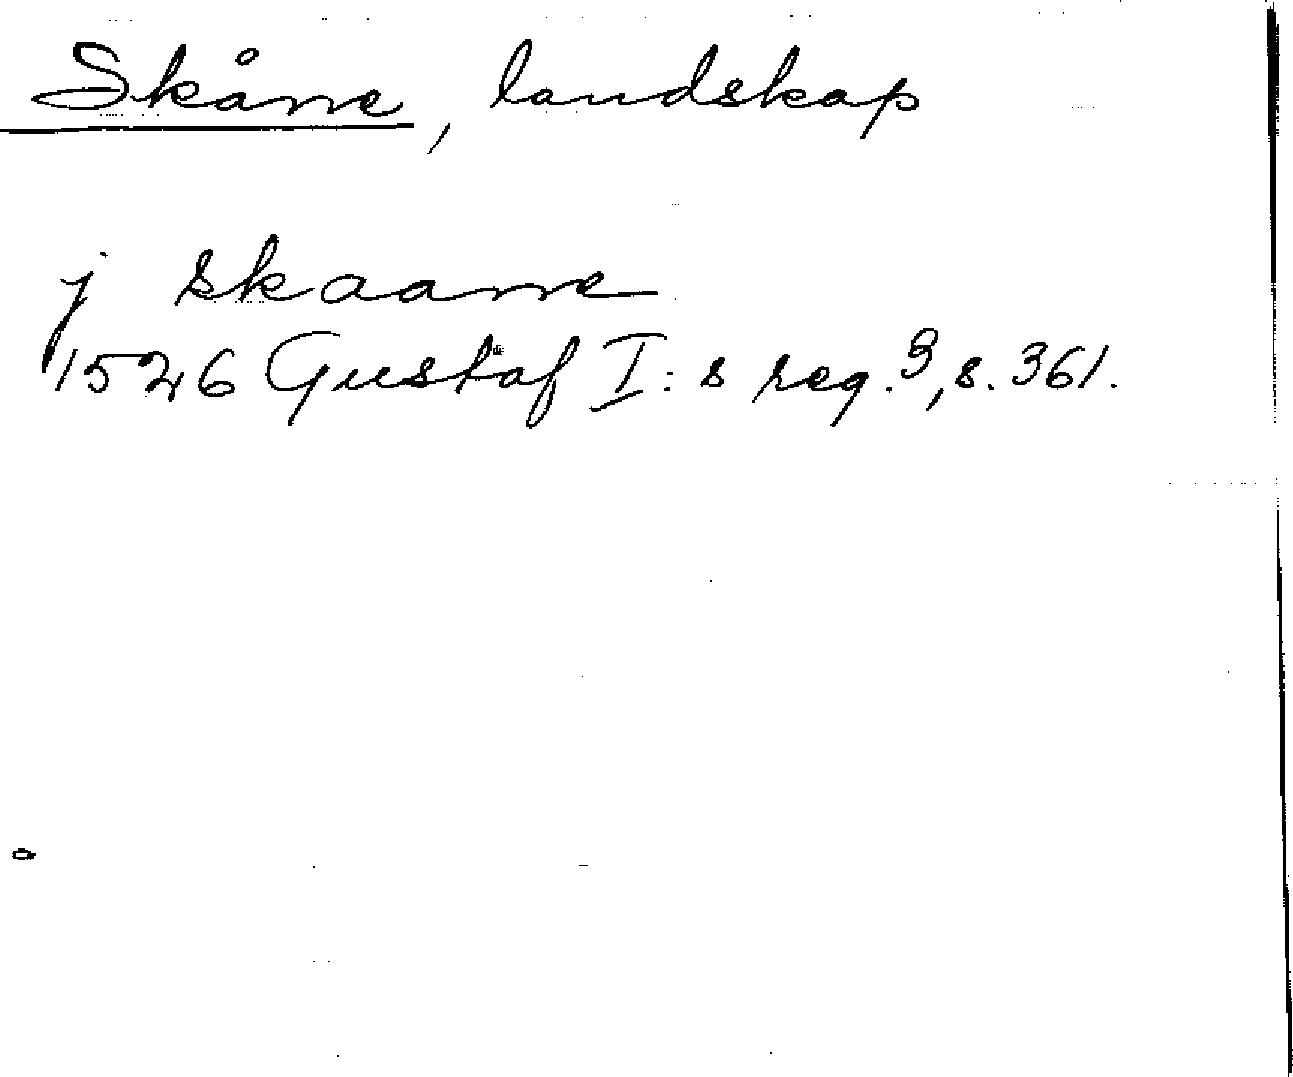 Skåne, landskap
j skaane
1526 Gustaf I:s reg. 3, s. 361.